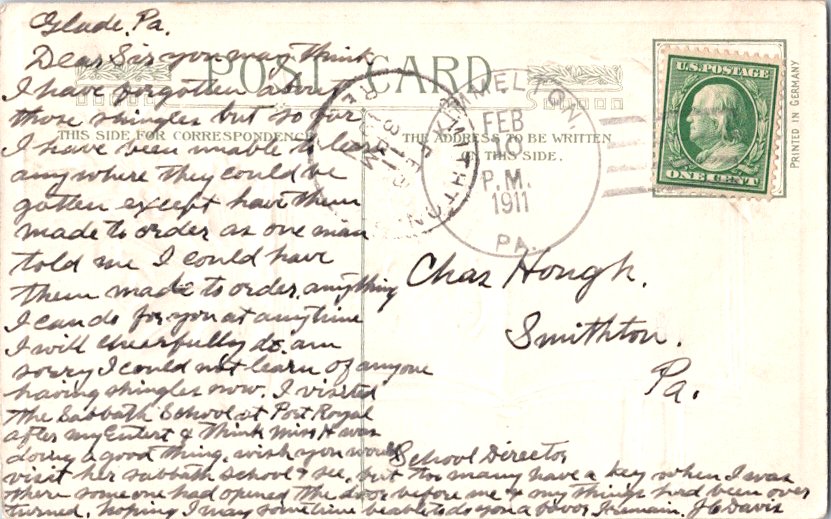 Glade, Pa.
Dear Sir you may think
I have forgotten about
those shingles but so far
I have been unable to learn
any where they could be
gotten except have them
made to order as one man
told me I could have
them made to order. anything
I can do for you at anytime
I will cheerfully do. am
sorry I could not learn of anyone
having shingles now. I visited
the Sabbath School at Port Royal
after my Entert & think Miss H was
doing a good thing. wish you would
visit her sabbath school & see, but too many have a key when I was
there some one had opened the door before me & my things had been over
turned. hoping I may sometime be able to do you a favor I remain. J C Davis
POST CARD
THIS SIDE FOR CORRESPONDENCE
THE ADDRESS TO BE WRITTEN
ON THIS SIDE.
FEB
10
P.M.
1911
PA.
U.S. POSTAGE
ONE CENT
PRINTED IN GERMANY
Chas Hough.
Smithton.
Pa.
School Director